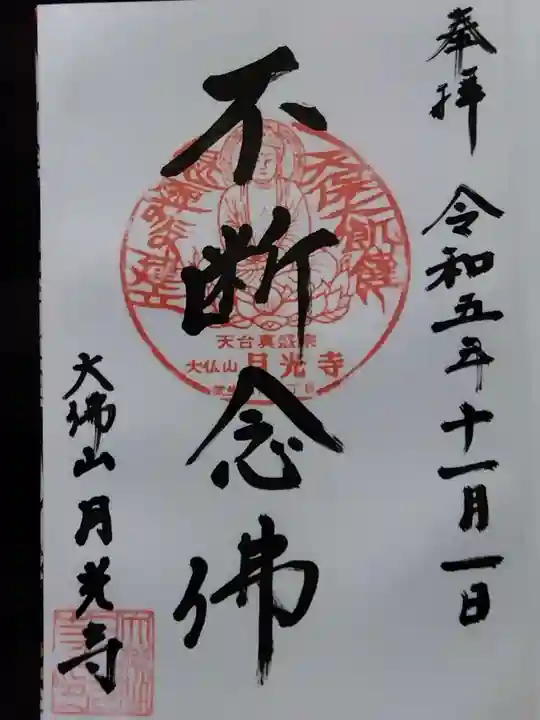 奉拝 令和五年十一月一日
不断念佛
天台真盛宗
大仏山 月光寺
大佛山月光寺